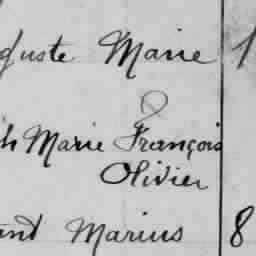 guste Marie 1
h Marie François
Olivier
ant Marius 8